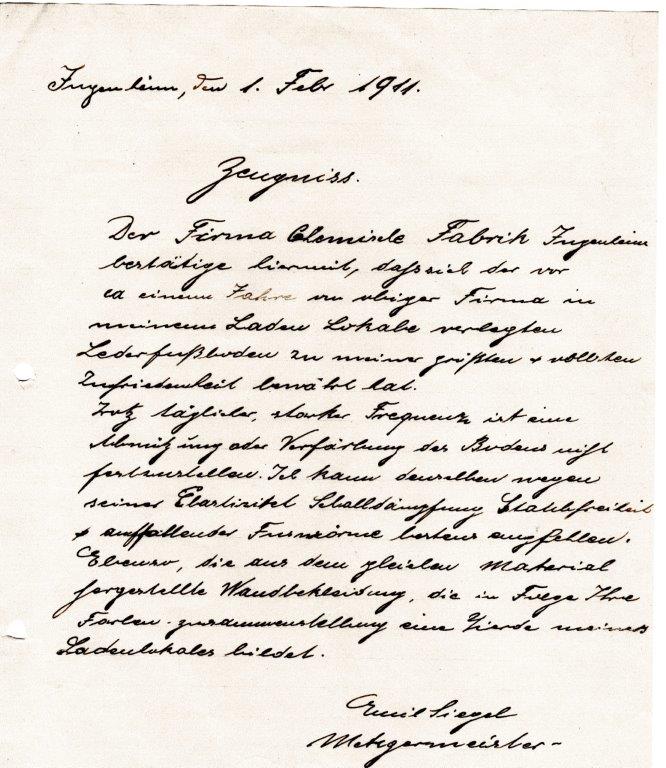 Jugenheim, den 1. Febr 1911.
Zeugniss.
Der Firma Chemische Fabrik Jugenheim
bestätige hiermit, daß sich der vor
ca einem Jahre von obiger Firma in
meinem Laden Lokale verlegten
Lederfußboden zu meiner größten & vollsten
Zufriedenheit bewährt hat.
Trotz täglicher, starker Frequenz ist eine
Abnützung oder Verfärbung des Bodens nicht
festzustellen. Ich kann denselben wegen
seiner Elastizität Schalldämpfung Staubfreiheit
& auffallender bestens empfehlen.
Ebenso, die aus dem gleichen Material
hergestellte Wandbekleidung, die in Folge Ihre
Farben-zusammenstellung eine Zierde meines
Ladenlokales bildet.
Emil Siegel
Metzgermeister-